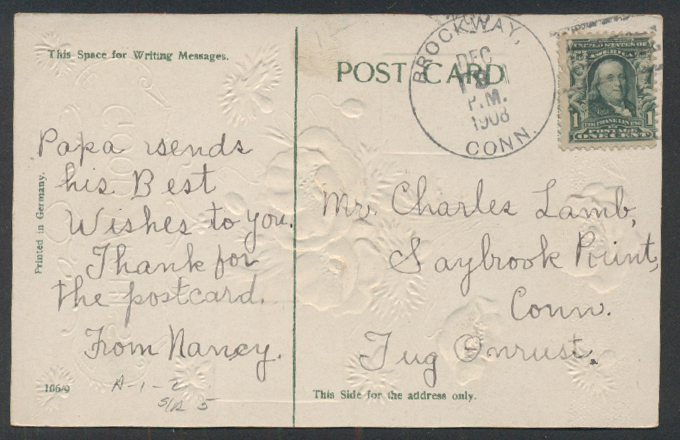 This Space for Writing Messages.
POST CARD
BROCKWAY,
DEC
P.M.
1908
CONN.
UNITED STATES OF
AMERICA
1 1
POSTAGE
ONE CENT
Papa sends
his Best
Wishes to you.
Thank for
the postcard.
From Nancy.
Mr. Charles Lamb,
Saybrook Point,
Conn.
Tug Onrust.
Printed in Germany.
This Side for the address only.
A-1-2
5